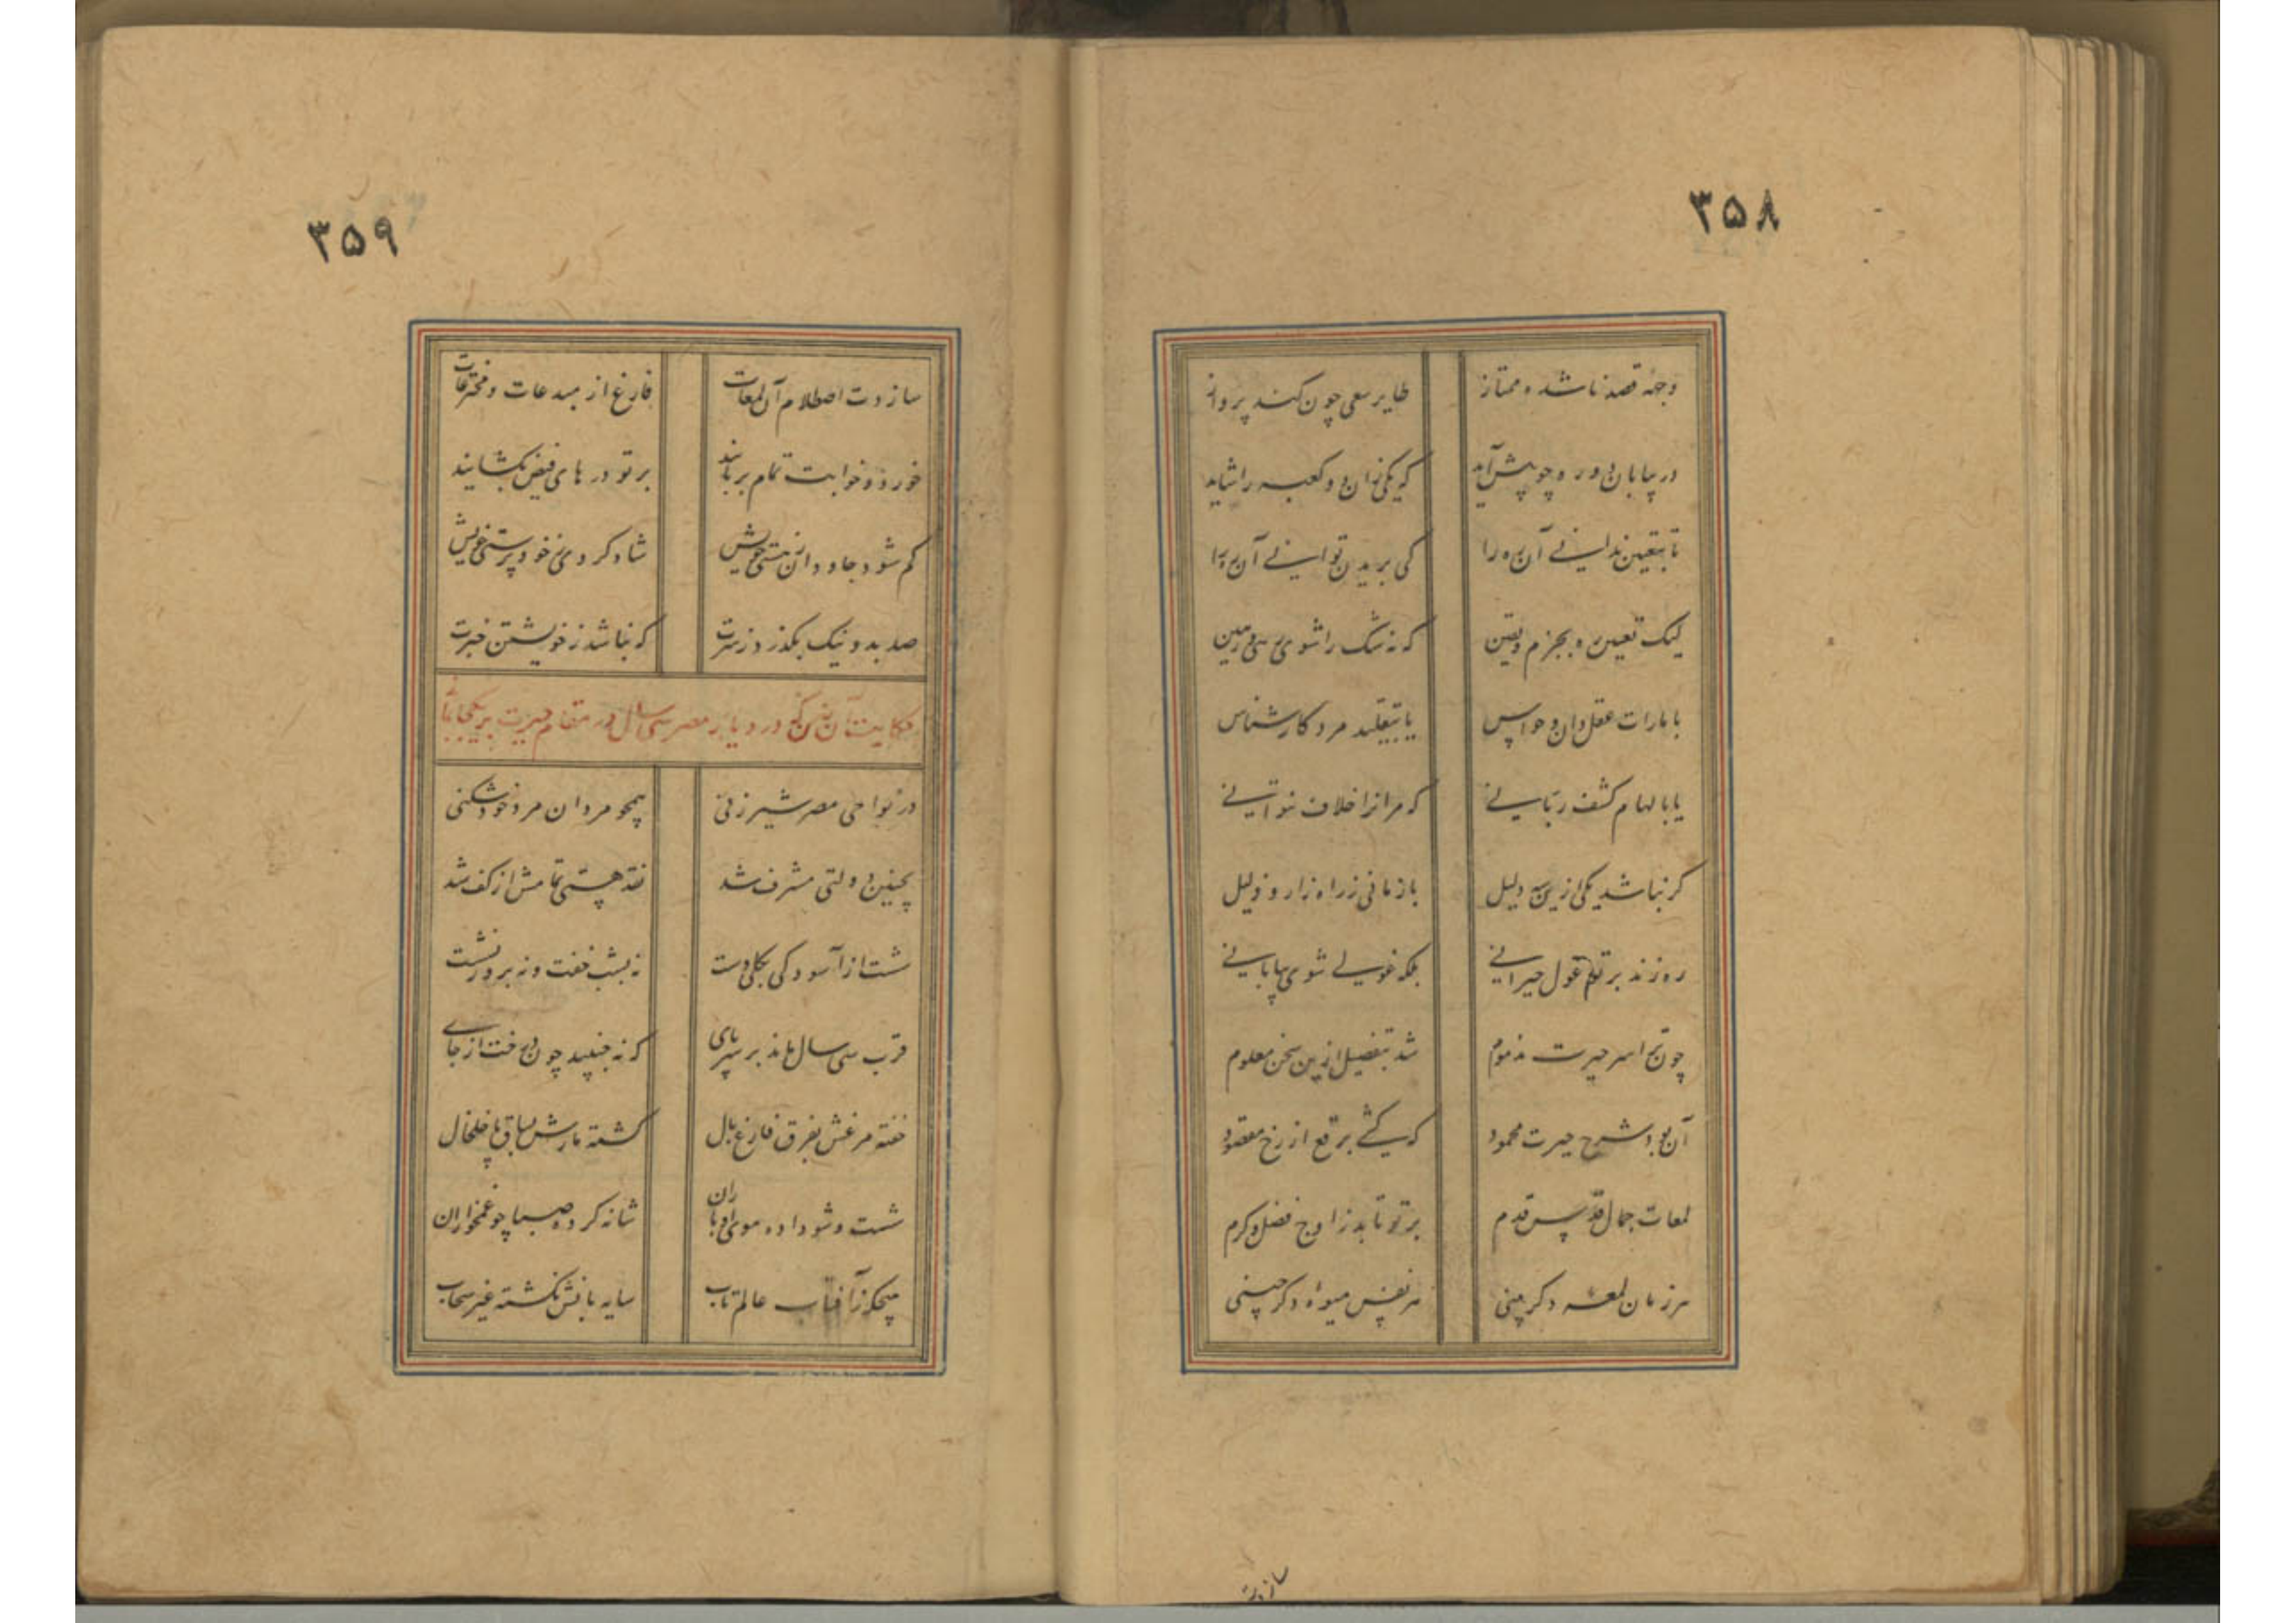 ۳۵۸
وجهٔ قصد ناشده ممتاز طایر سعی چون کند پرواز
در بیابان دو ره چو پیش آید که یکی زان دو کعبه را شاید
تا بتعیین ندانی آن ره را کی بریدن توانی آن ره را
لیک تعیین ره بجزم و یقین که نه شک را شوی رهین
یا بامارات عقل دان و حواس یا بتقلید مرد کارشناس
یا بالهام کشف ربانی که مر انرا خلاف نتوانی
گر نباشد یکی ازین سه دلیل باز مانی ز راه زار و ذلیل
ره زند بر تو غول حیرانی بلکه غولی شوی بیابانی
چون ترا سر حیرت مذموم شد بتفصیل ازین سخن معلوم
آن بود شرح حیرت محمود که کشی برقع از رخ مقصود
لمعات جمال قدس قدم بر تو تابد ز اوج فضل و کرم
هر زمان لمعه دگر بینی هر نفس میوه دگر چینی
سازدت
۳۵۹
سازدت اصطلام آن لمعات فارغ از مبدعات و مخترعات
خورد و خوابت تمام بربایند بر تو درهای فیض بگشایند
گم شود جاودان ز هستی خویش شاد گردی ز خود پرستی خویش
صد بد و نیک بگذرد ز سرت که نباشد ز خویشتن خبرت
حکایت آن زن که در دیار مصر سی سال در مقام حیرت بر یکجا
در نواحی مصر شیرزنی همچو مردان مرد خود شکنی
بچنین دولتی مشرف شد نقد هستی تمامش از کف شد
شست از آسودگی بکلی دست نه بشب خفت و نه بروز نشست
قرب سی سال ماند بر سر پای که نه جنبید چون درخت از جای
خفته مرغش بفرق فارغ بال گشته مارش بساق پا خلخال
شست و شو داده موی او باران شانه کرده صبا چو غمخواران
هیچگه ز آفتاب عالم تاب سایه بانش نگشته غیر سحاب